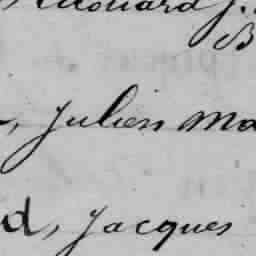 Edouard J.
B
, Julien Ma
d, Jacques